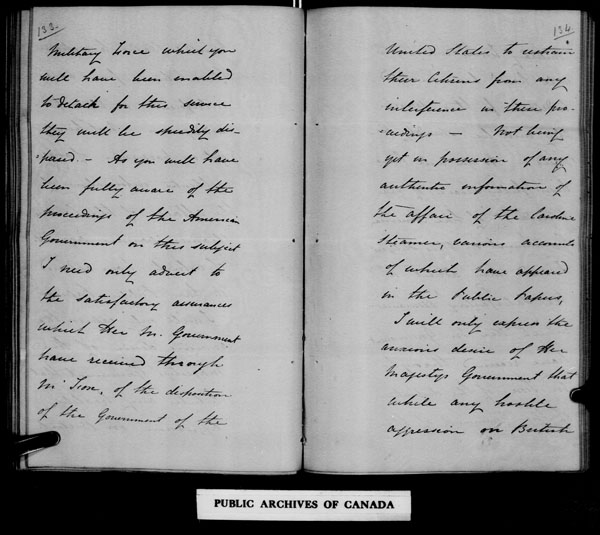 133.
Military Force which you
will have been enabled
to detach for this service
they will be speedily dis-
:persed. - As you will have
been fully aware of the
proceedings of the American
Government on this subject
I need only advert to
the satisfactory assurances
which Her M. Government
have received through
Mr. , of the disposition
of the Government of the
134
United States to restrain
their Citizens from any
interference in these pro-
:ceedings - Not being
yet in possession of any
authentic information of
the affair of the Caroline
Steamer, various accounts
of which have appeared
in the Public Papers,
I will only express the
anxious desire of Her
Majestys Government that
while any hostile
aggression on British
PUBLIC ARCHIVES OF CANADA